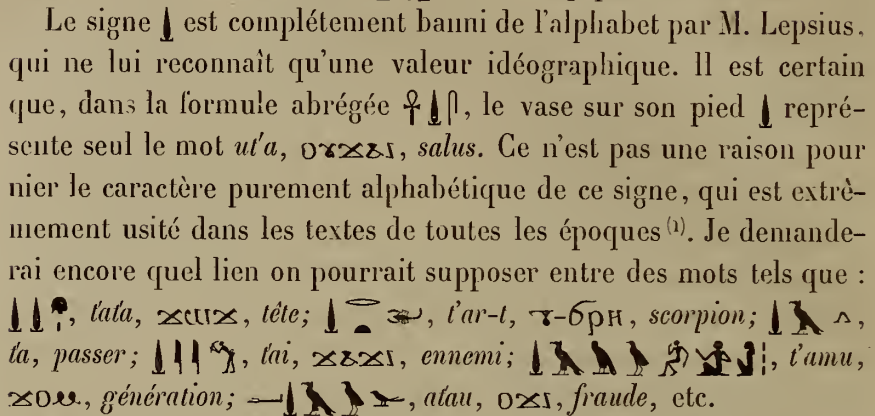 Le signe 𓍑 est complétement banni de l'alphabet par M. Lepsius,
qui ne lui reconnaît qu'une valeur idéographique. Il est certain
que, dans la formule abrégée 𓋹𓍑𓋴, le vase sur son pied 𓍑 repré-
sente seul le mot ut'a, ⲟⲩϫⲁⲓ, salus. Ce n'est pas une raison pour
nier le caractère purement alphabétique de ce signe, qui est extrê-
mement usité dans les textes de toutes les époques (1). Je demande-
rai encore quel lien on pourrait supposer entre des mots tels que :
𓍑𓍑, t'at'a, ϫⲱϫ, tête; 𓍑𓂋𓏏, t'ar-t, ⲧ-ϭⲣⲏ, scorpion; 𓍑𓄿𓂻,
t'a, passer; 𓍑𓏭, t'ai, ϫⲁϫⲓ, ennemi; 𓍑𓄿𓅓𓅱, t'amu,
ϫⲟⲙ, génération; 𓂝𓍑𓄿𓅱𓅪, at'au, ⲟϫⲓ, fraude, etc.